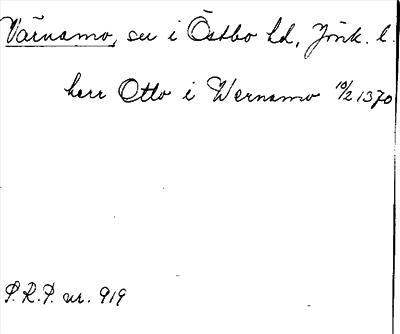 Värnamo, sn i Östbo hd, Jönk. l.
herr Otto i Wernamo 10/2 1370
S.R.P. nr. 919